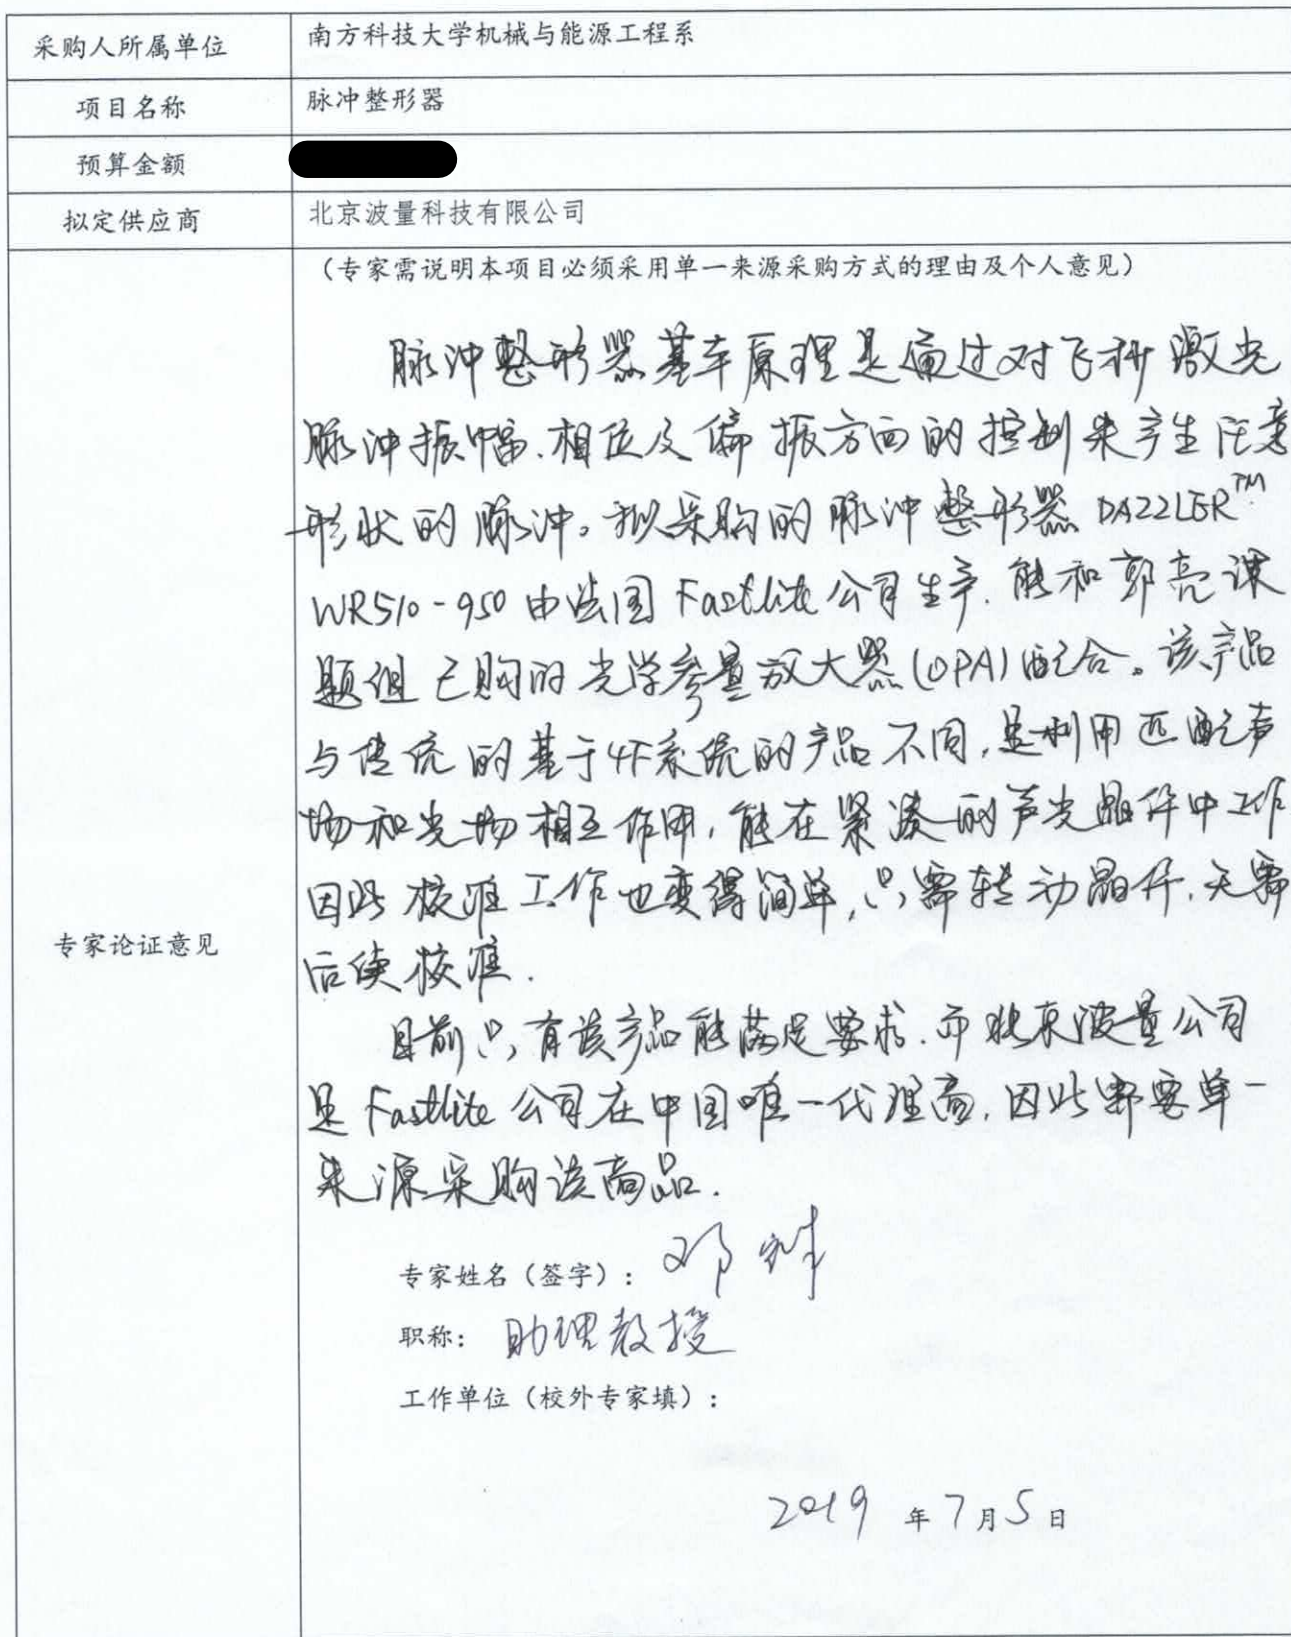 采购人所属单位 南方科技大学机械与能源工程系
项目名称 脉冲整形器
预算金额
拟定供应商 北京波量科技有限公司
(专家需说明本项目必须采用单一来源采购方式的理由及个人意见)
脉冲整形器基本原理是通过对飞秒激光
脉冲振幅、相位及偏振方向的控制来产生任意
形状的脉冲。拟采购的脉冲整形器 DAZZLER™
WR510-950 由法国 Fastlite 公司生产. 能和郭亮课
题组已购的光学参量放大器(OPA)配合。该产品
与传统的基于4F系统的产品不同, 是利用匹配声
场和光场相互作用, 能在紧凑的声光晶体中工作
因此校准工作也变得简单, 只需转动晶体, 无需
专家论证意见
后续校准.
目前只有该产品能满足要求. 而北京波量公司
是 Fastlite 公司在中国唯一代理商, 因此需要单一
来源采购该商品.
专家姓名(签字): 邓
职称: 助理教授
工作单位(校外专家填):
2019 年 7 月 5 日